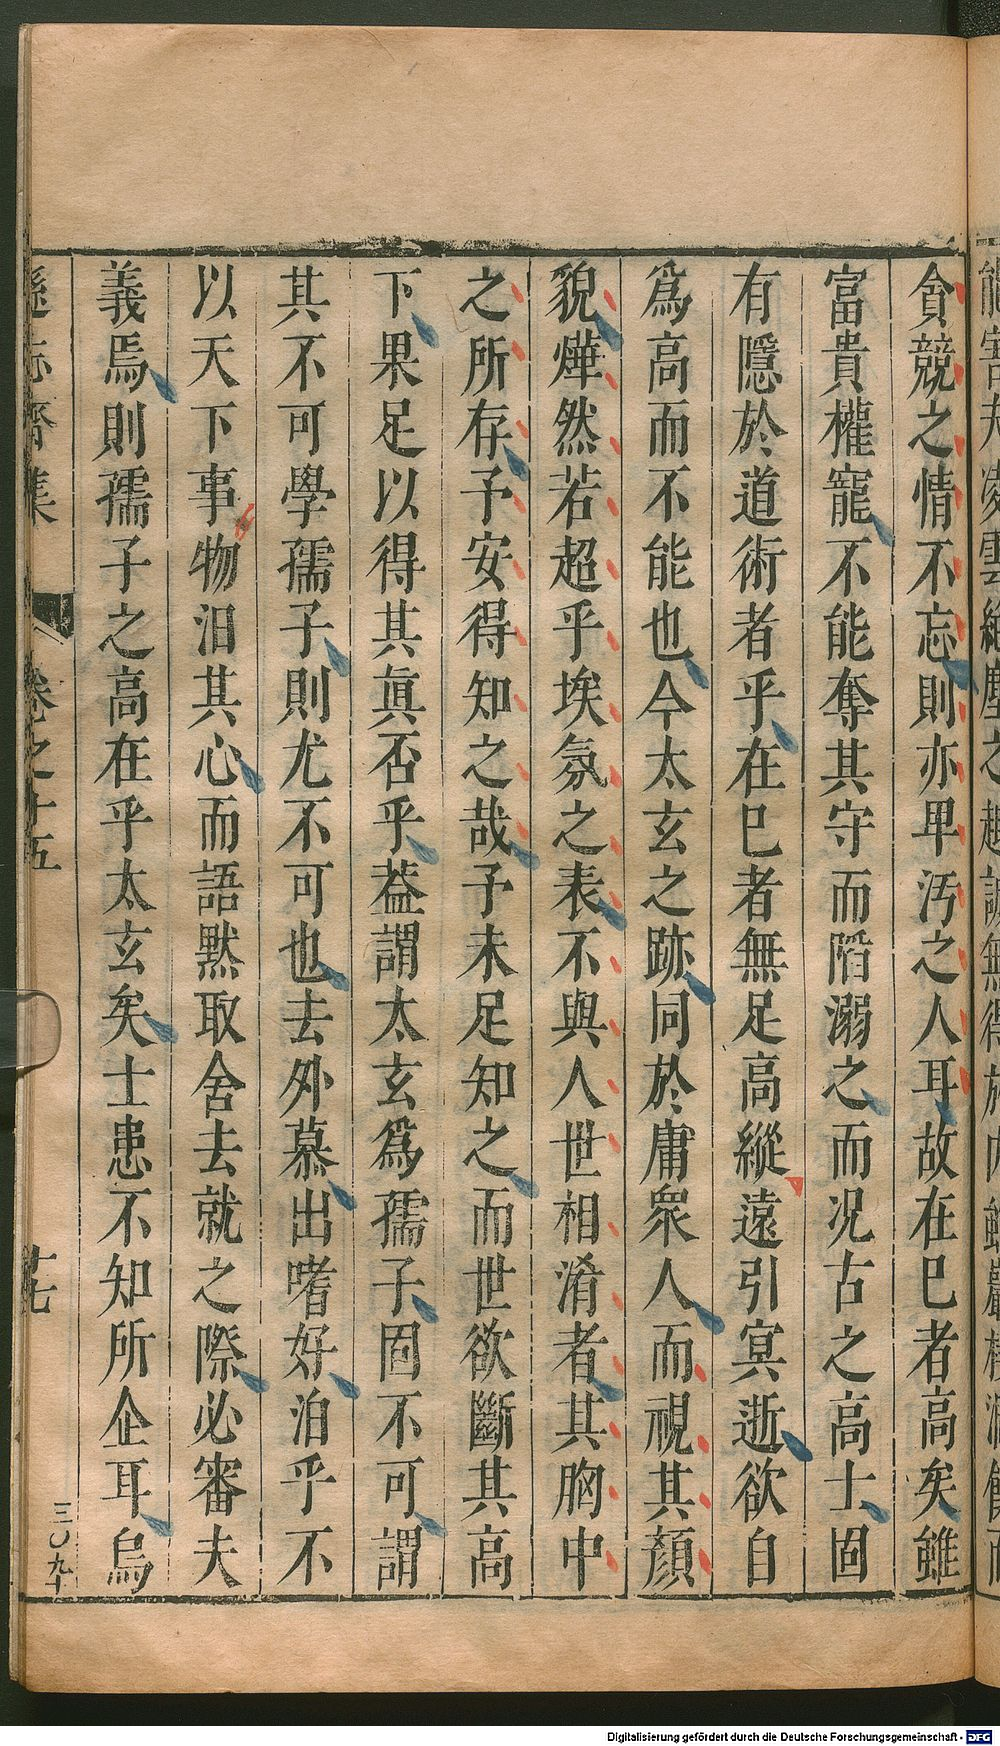 貪競之情不忘則亦卑汚之人耳故在巳者高矣雖
富貴權寵不能奪其守而陷溺之而况古之高士固
有隱於道術者乎在巳者無足高縱遠引冥逝欲自
爲高而不能也今太玄之跡同於庸衆人而視其顏
貌燁然若超乎埃氛之表不與人世相淆者其胸中
之所存予安得知之哉予未足知之而世欲斷其高
下果足以得其眞否乎葢謂太玄爲孺子固不可謂
其不可學孺子則尤不可也去外慕出嗜好泊乎不
以天下事物汩其心而語默取舍去就之際必審夫
義焉則孺子之高在乎太玄矣士患不知所企耳烏
遜志齋集 卷之十五 十七 三〇九十
Digitalisierung gefördert durch die Deutsche Forschungsgemeinschaft - DFG